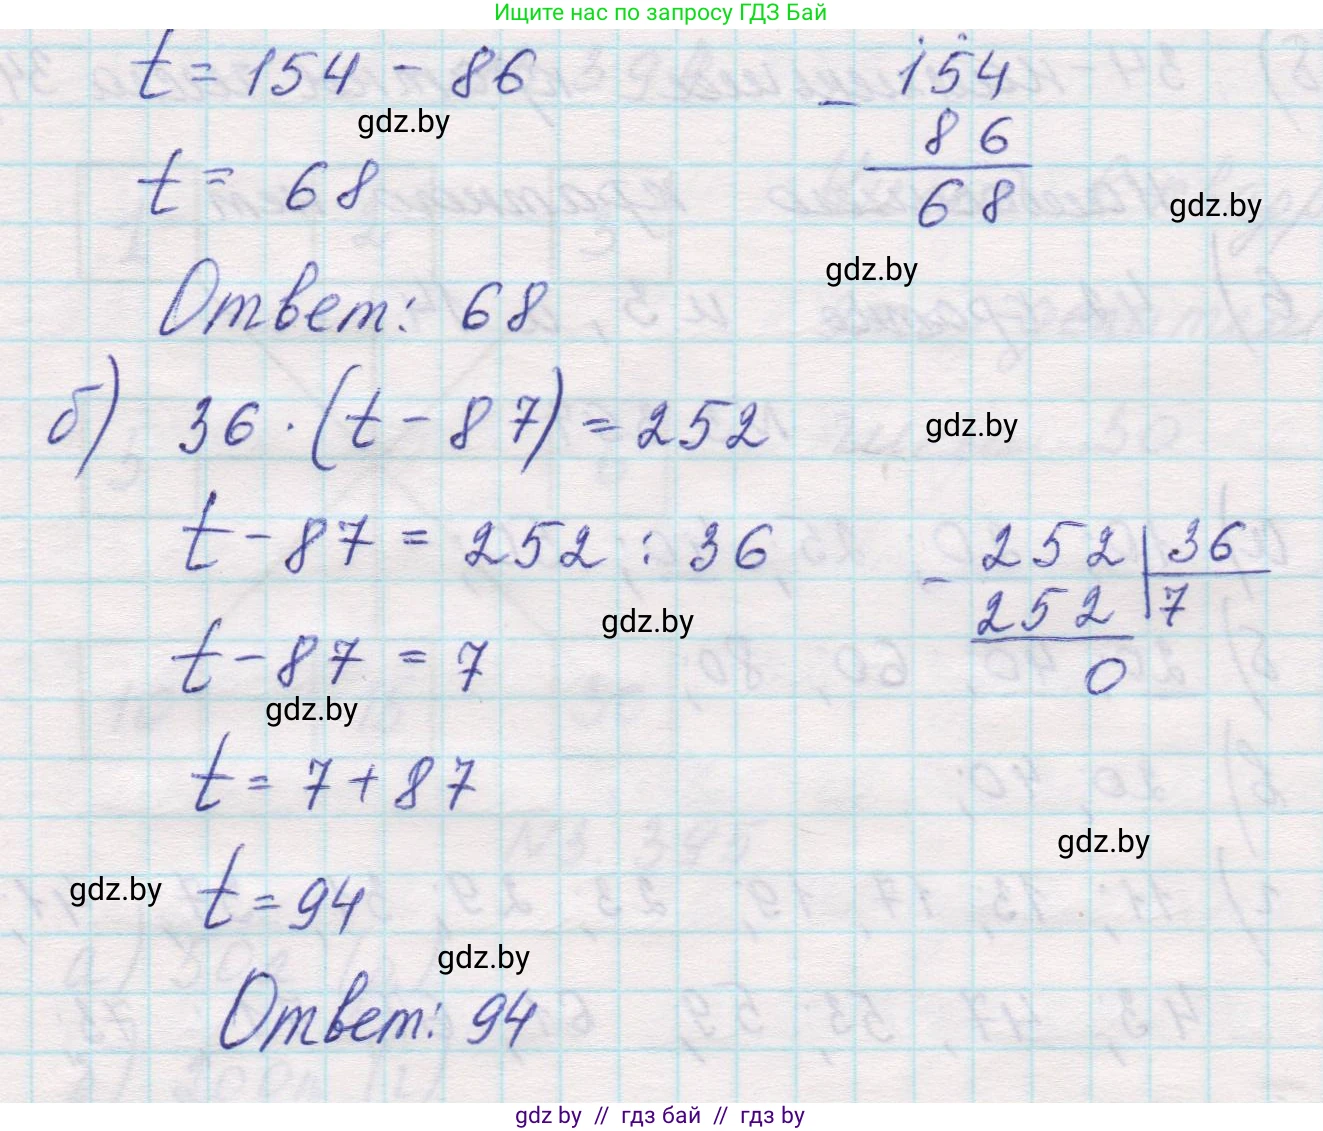 Ищите нас по запросу ГДЗ Бай
t = 154 - 86
- 154
gdz.by
86
t = 68
68
gdz.by
gdz.by
Ответ: 68
б) 36 · (t - 87) = 252
gdz.by
t - 87 = 252 : 36
- 252 | 36
252 | 7
gdz.by
0
t - 87 = 7
gdz.by
t = 7 + 87
gdz.by
gdz.by
t = 94
gdz.by
Ответ: 94
gdz by // гдз бай // гдз by